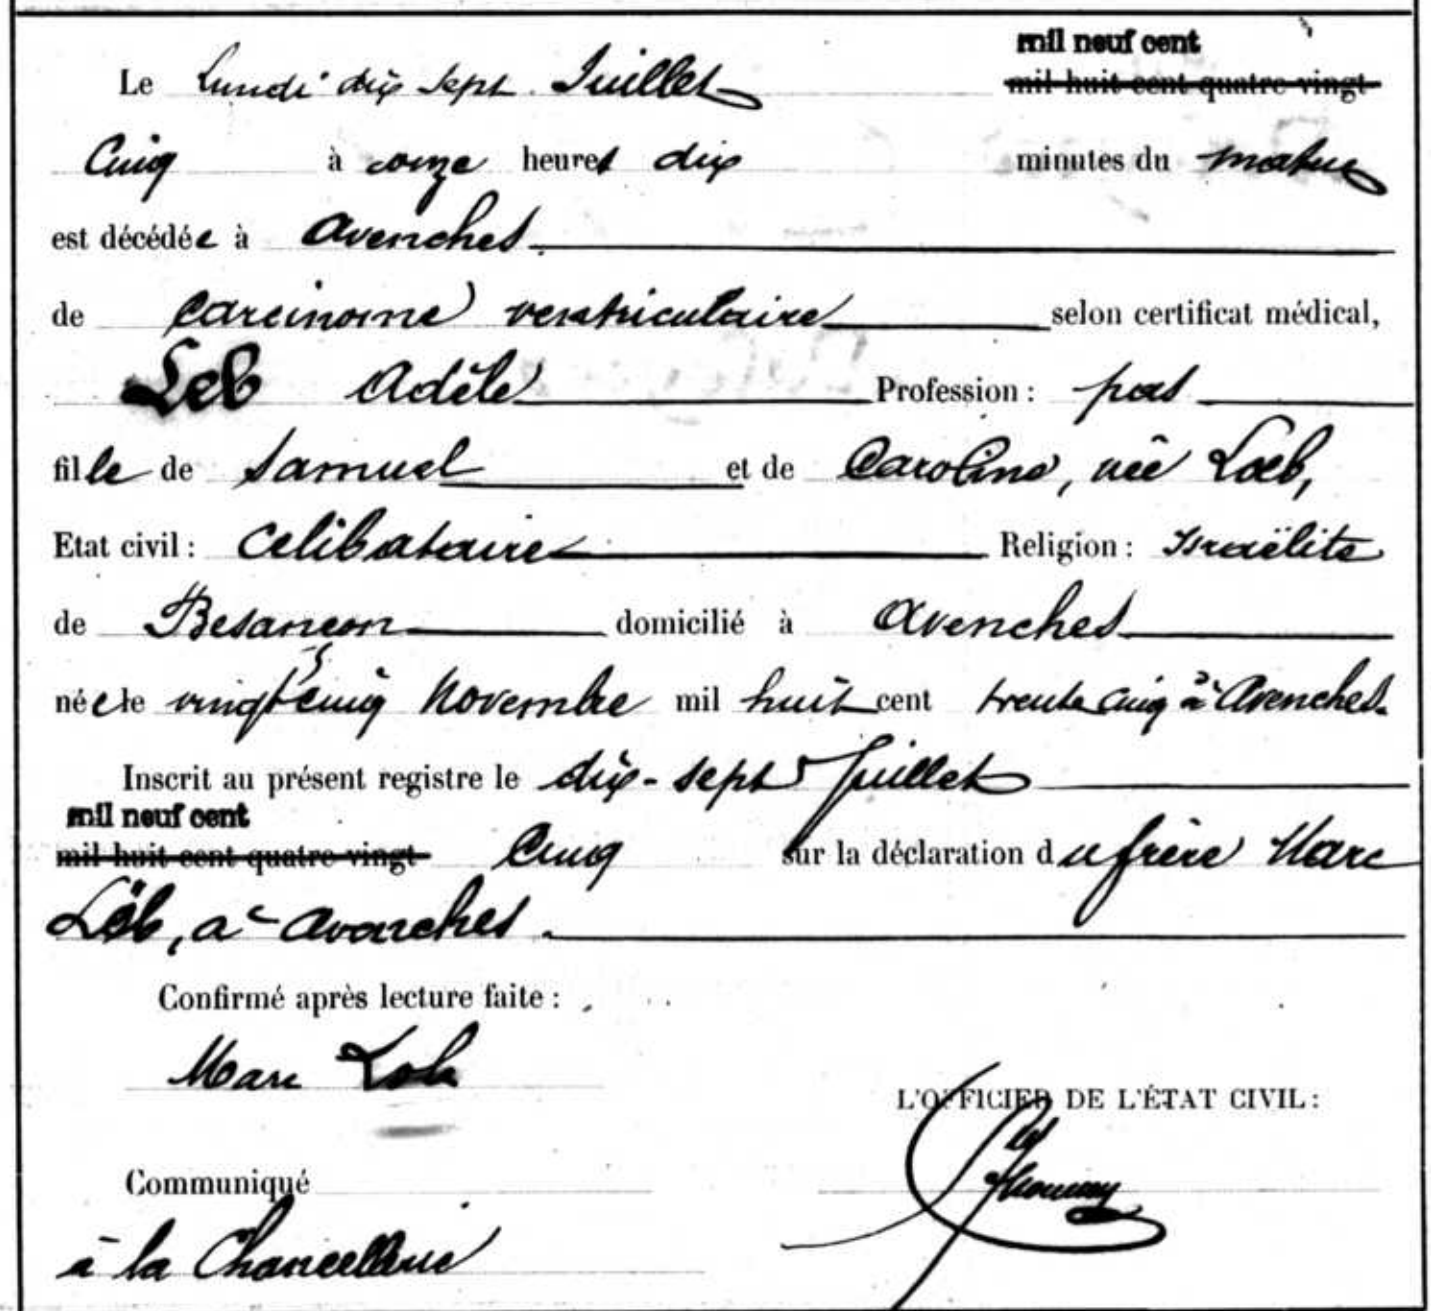 mil neuf cent
Le Lundi dix sept Juillet mil huit cent quatre-vingt
Cinq à onze heures dix minutes du matin
est décédée à Avenches
de Carcinome ventriculaire selon certificat médical,
Leb Adèle Profession : pas
fille de Samuel et de Caroline, née Loeb,
Etat civil : Célibataire Religion : Israëlite
de Besançon domicilié à Avenches
née le vingt cinq Novembre mil huit cent trente cinq à Avenches.
Inscrit au présent registre le dix-sept Juillet
mil neuf cent
mil huit cent quatre-vingt Cinq sur la déclaration du frère Marc
Löb, à Avenches.
Confirmé après lecture faite :
Marc Lob
L'OFFICIER DE L'ÉTAT CIVIL :
Communiqué
à la Chancellerie